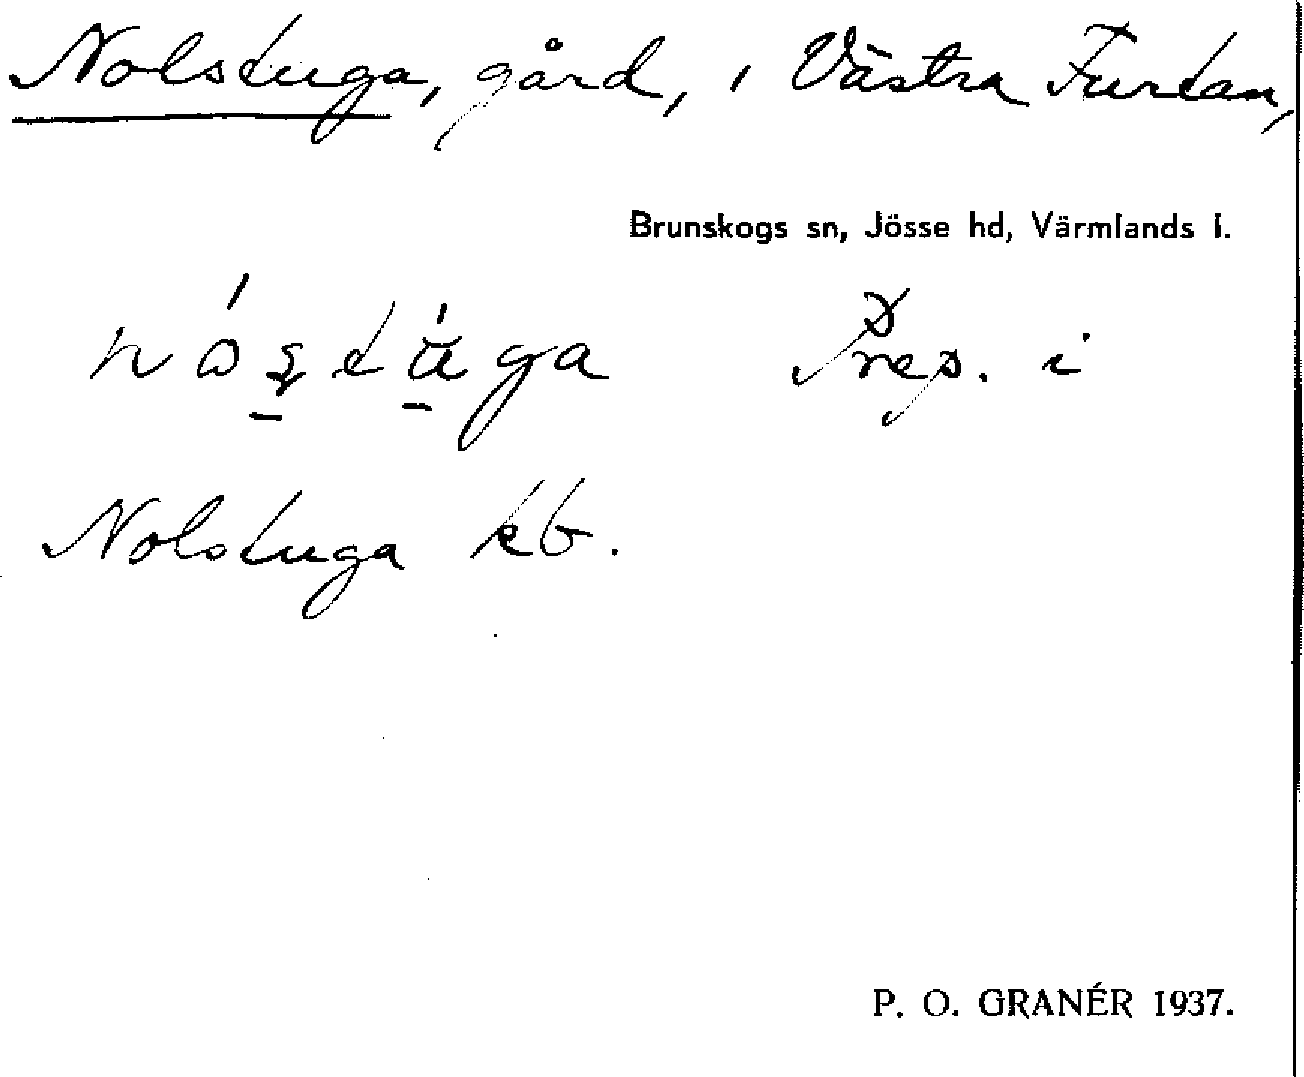 Nolstuga, gård, i Västra Furtan,
Brunskogs sn, Jösse hd, Värmlands l.
Prep. i
Nolstuga kb.
P. O. GRANÉR 1937.